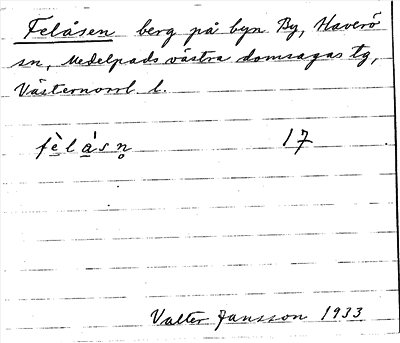 Felåsen berg på byn By, Haverö
sn, Medelpads västra domsagas tg,
Västernorrl l.
fèlásn̥ 17
Valter Jansson 1933